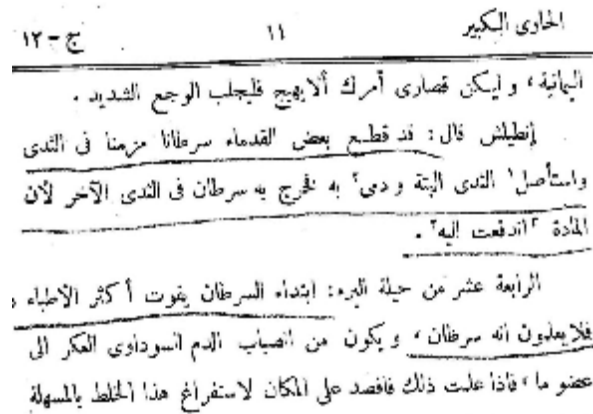 الحاوى الكبير ١١ ج - ١٢
اليمانية ، و ليكن قصارى أمرك ألا يهيج فليجلب الوجع الشديد .
إنطيلش قال : قد قطع بعض القدماء سرطانا مزمنا فى الثدى
واستأصل١ الثدى البتة و دى٢ به فخرج به سرطان فى الثدى الآخر لأن
المادة ٣اندفعت إليه٣ .
الرابعة عشر من حيلة البرء : ابتداء السرطان يفوت أكثر الأطباء
فلا يعلمون انه سرطان ، و يكون من انصباب الدم السوداوى العكر الى
عضو ما ، فاذا علمت ذلك فافصد على المكان لاستفراغ هذا الخلط بالمسهلة